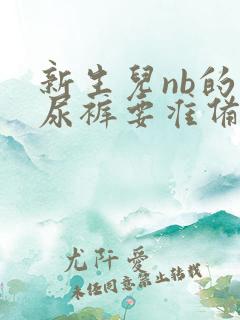 新生兒nb的
尿裤要准備
尤阡愛
未经同意禁止转载